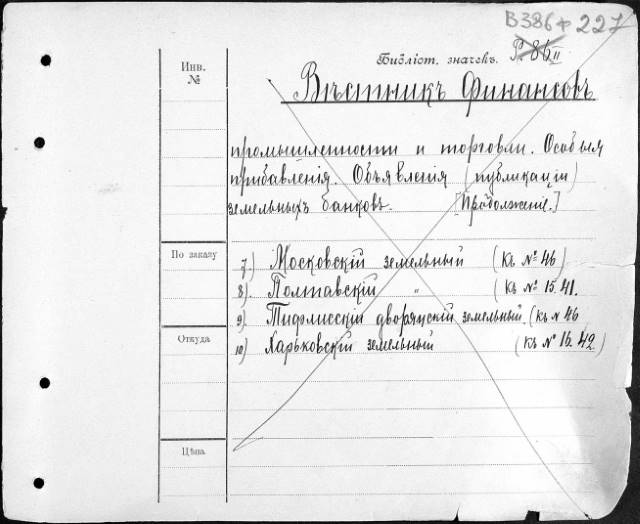 В386 227
Библіот. значекъ. Р. 86 II
Инв. №
Вѣстникъ Финансовъ
промышленности и торговли. Особыя
прибавленія. Объявленія (публикаціи)
земельныхъ банковъ. [Продолженіе.]
По заказу
7.) Московскій земельный (къ № 46)
8). Полтавскій " (къ № 15. 41.
9). Тифлисскій дворянскій земельный. (къ № 46
Откуда
10) Харьковскій земельный (къ № 16. 42)
Цѣна